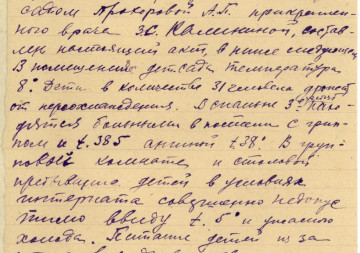 садом Прохоровой А.П. прикреплен-
ного врача З.С. Калининой, состав-
лен настоящий акт, в ниже следующем
В помещении детсада температура
8° Дети в количестве 31 человека дрожат
от переохлаждения. В спальне 3 нахо-
дятся больными в постели с грип-
пом и t. 38 5 ангиной t 38°. В груп-
повой комнате и столовой
пребывание детей в условиях
интерната совершенно недопус-
тимо ввиду t. 5° и ужасного
холода. Питание детей из за